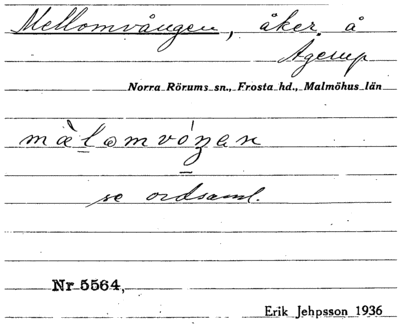 Mellomvången, åker å
Agerup
Norra Rörums sn., Frosta hd., Malmöhus län
mæ̀lomvóŋan
se ordsaml.
Nr 5564,
Erik Jehpsson 1936